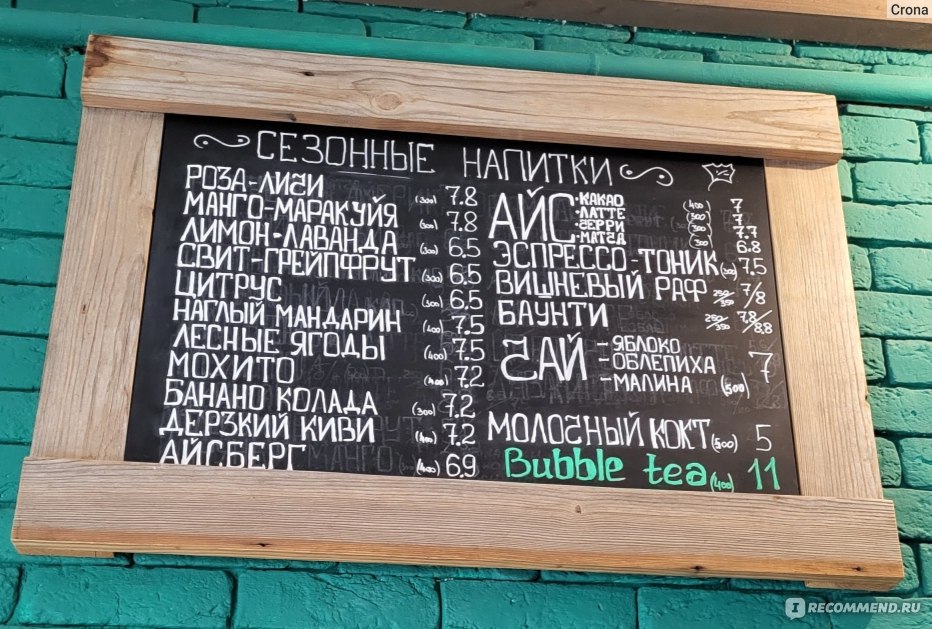 Crona
СЕЗОННЫЕ НАПИТКИ
РОЗА-ЛИЧИ (300) 7.8
МАНГО-МАРАКУЙЯ (300) 7.8
ЛИМОН-ЛАВАНДА (300) 6.5
СВИТ-ГРЕЙПФРУТ (300) 6.5
ЦИТРУС (300) 6.5
НАГЛЫЙ МАНДАРИН (400) 7.5
ЛЕСНЫЕ ЯГОДЫ (400) 7.5
МОХИТО (400) 7.2
БАНАНО КОЛАДА (300) 7.2
ДЕРЗКИЙ КИВИ (400) 7.2
АЙСБЕРГ (400) 6.9
АЙС •КАКАО (400) 7
•ЛАТТЕ (300) 7
•БЕРРИ (300) 7.7
•МАТЧА (300) 6.8
ЭСПРЕССО-ТОНИК (300) 7.5
ВИШНЕВЫЙ РАФ 250/350 7/8
БАУНТИ 250/350 7.8/8.8
ЧАЙ -ЯБЛОКО
-ОБЛЕПИХА
-МАЛИНА (500) 7
МОЛОЧНЫЙ КОКТ (500) 5
Bubble tea (400) 11
I RECOMMEND.RU